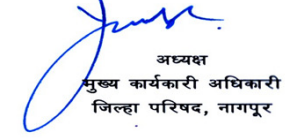 अध्यक्ष
मुख्य कार्यकारी अधिकारी
जिल्हा परिषद, नागपूर